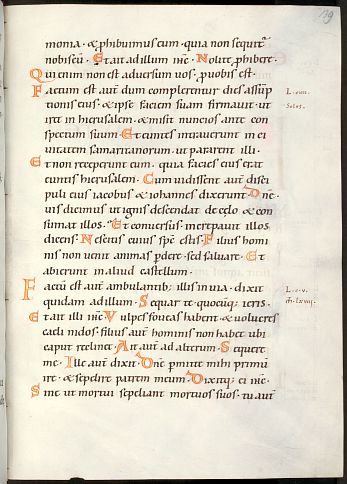 139
monia · & phibuimus eum · quia non sequit᷑
nobiscū · Et ait ad illum ihc̄ · Nolite phibere ·
Qui enim non est aduersum uos · p uobis est ·
Factum est aut̄ dum complerentur dies assūp
tionis eius · & ipse faciem suam firmauit ut
iret in hierusalem · & misit nuncios ante con
spectum suum · Et euntes intrauerunt in ci
uitatem samaritanorum · ut pararent illi ·
Et non receperunt eum · quia facies eius erat
euntis hierusalem · Cum uidissent aut̄ disci
puli eius iacobus & iohannes dixerunt · Dnē
uis dicimus ut ignis descendat de cęlo & con
sumat illos · Et conuersus increpauit illos
dicens · Nescitis cuius sps̄ estis · Filius homi
nis non uenit animas pdere · sed saluare · Et
abierunt in aliud castellum ·
Factū est aut̄ ambulantib; illis in uia · dixit
quidam ad illum · Sequar te quocūq; ieris ·
Et ait illi ihc̄ · Vulpes foueas habent · & uolucres
caeli nidos · filius aut̄ hominis non habet ubi
caput reclinet · Ait aut̄ ad alterum · Sequere
me · Ille aut̄ dixit · Dnē pmitte mihi primū
ire · & sepelire patrem meum · Dixitq; ei ihc̄ ·
Sine ut mortui sepeliant mortuos suos · tu aut̄
Solus ·
L · c · v ·